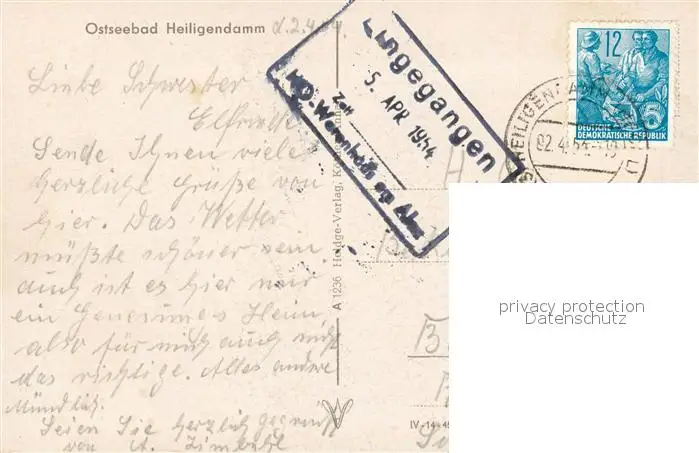 Ostseebad Heiligendamm d. 2.4.54
Liebe Schwester
Elfriede
Sende Ihnen viele
herzliche Grüße von
hier. Das Wetter
müßte schöner sein.
auch ist es hier nur
ein Genesungs Heim
also für mich auch nicht
das richtige. Alles andere
Mündlich.
Seien Sie herzlich gegrüßt
von
Eingegangen
5. APR 1954
Zeit
A 1236 Heldge-Verlag, K
IV-14-48
12
DEUTSCHE
DEMOKRATISCHE REPUBLIK
HEILIGEN
02.4.54
privacy protection
Datenschutz